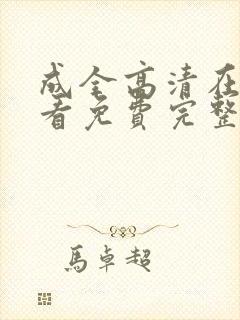 成全高清在
看免费完整
马卓超